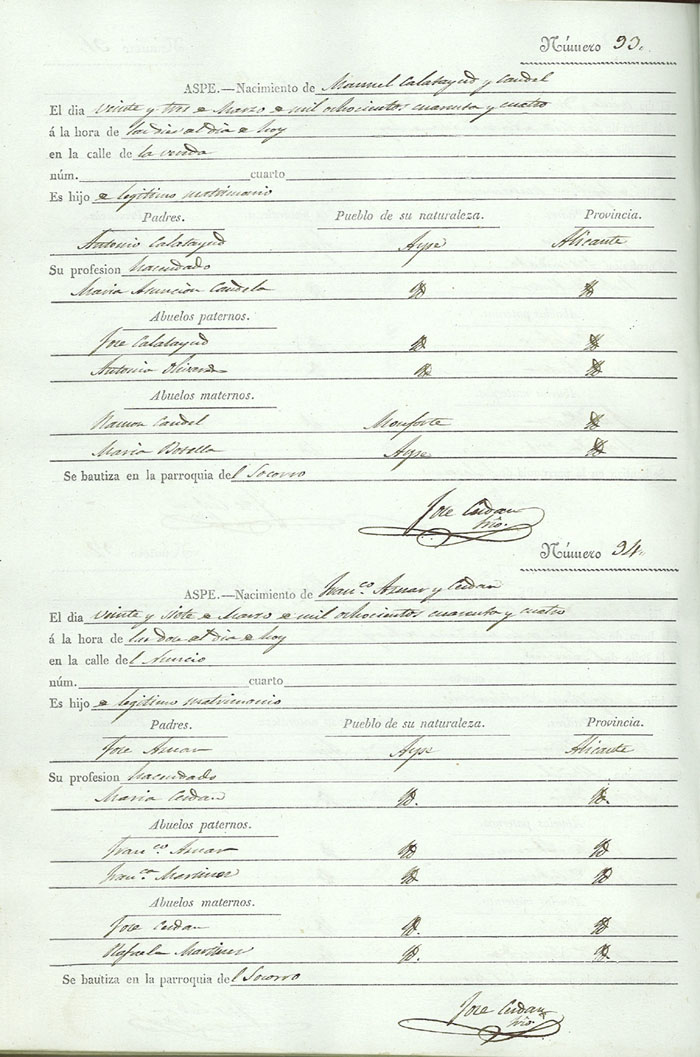 Número 33.
ASPE.—Nacimiento de Manuel Calatayud y Candel
El dia veinte y tres de Marzo de mil ochocientos cuarenta y cuatro
á la hora de las dies del dia de hoy
en la calle de la
núm. cuarto
Es hijo de legitimo matrimonio
Padres. Pueblo de su naturaleza. Provincia.
Antonio Calatayud Aspe Alicante
Su profesion hacendado
Maria Asuncion Candela Id Id
Abuelos paternos.
Jose Calatayud Id Id
Antonia Id Id
Abuelos maternos.
Ramon Candel Monforte Id
Maria Botella Aspe Id
Se bautiza en la parroquia del Socorro
Jose Cerdan
Número 34.
ASPE.—Nacimiento de Franco. Aznar y Cerdan
El dia veinte y siete de Marzo de mil ochocientos cuarenta y cuatro
á la hora de las dos del dia de hoy
en la calle del
núm. cuarto
Es hijo de legitimo matrimonio
Padres. Pueblo de su naturaleza. Provincia.
Jose Aznar Aspe Alicante
Su profesion hacendado
Maria Cerdan Id. Id.
Abuelos paternos.
Franco Aznar Id Id
Franca Martinez Id Id
Abuelos maternos.
Jose Cerdan Id. Id
Rafaela Martinez Id. Id
Se bautiza en la parroquia del Socorro
Jose Cerdan